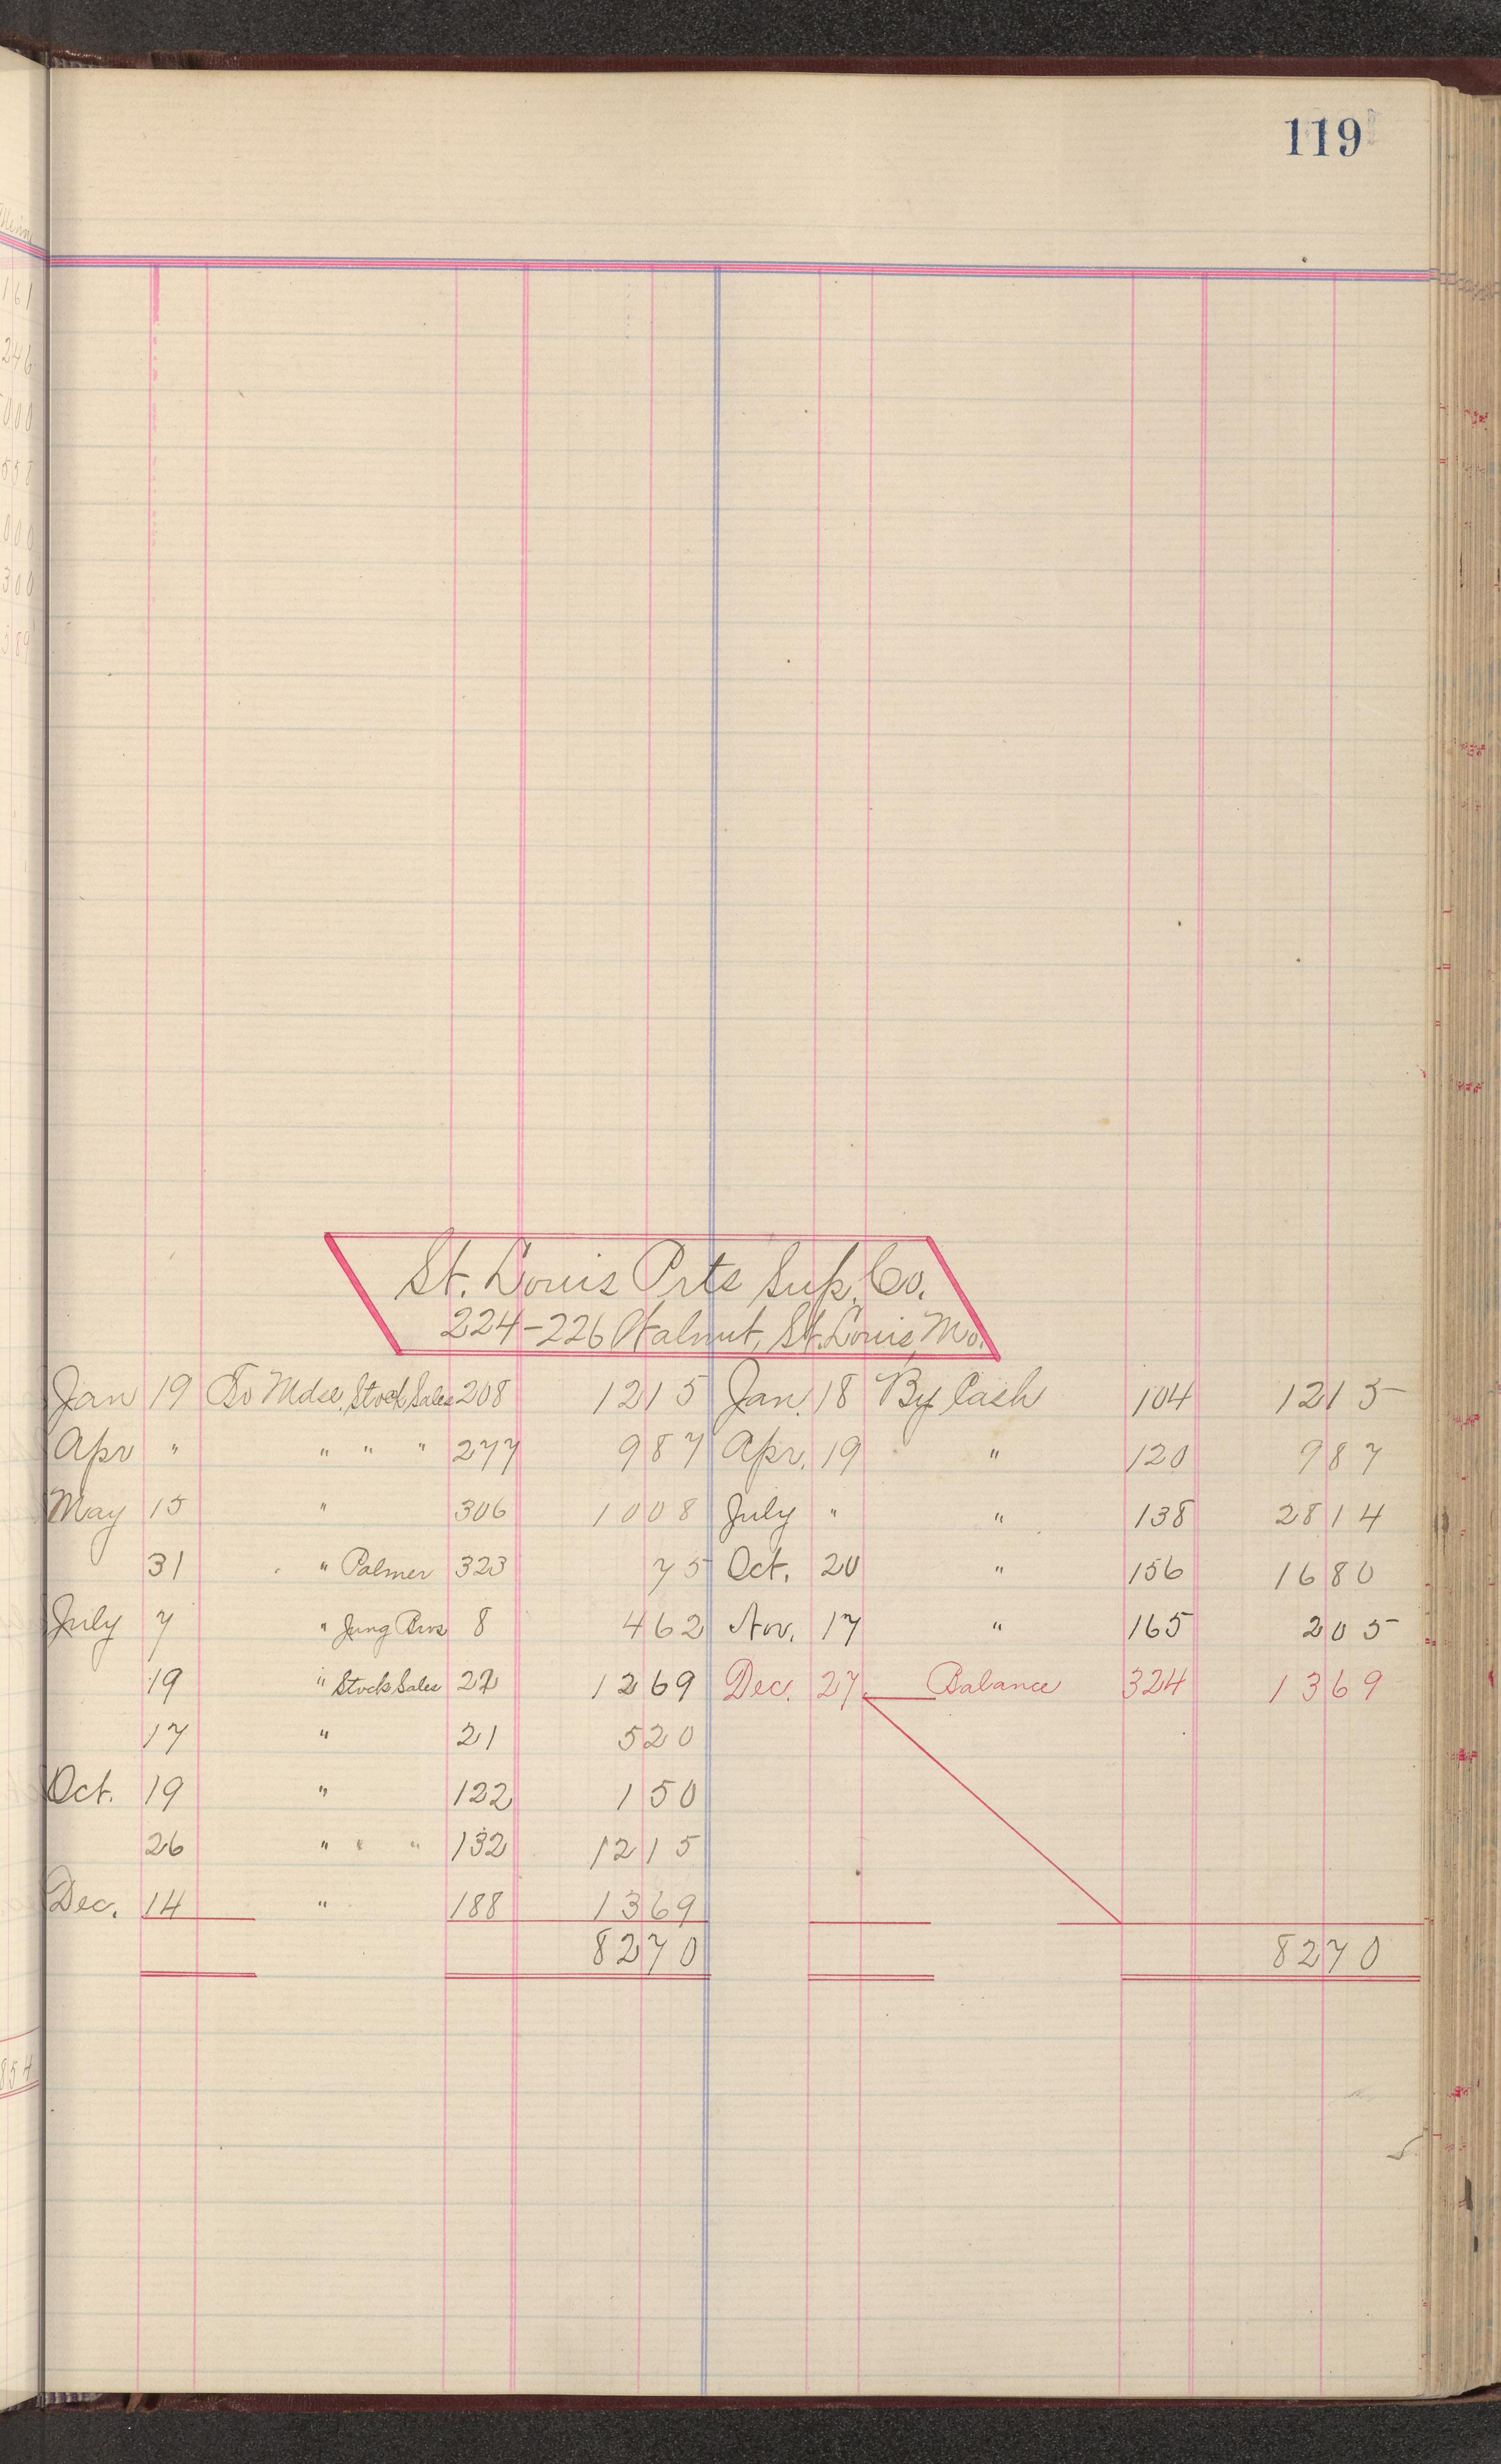 119
St. Louis Prts Sup. Co.
224-226 Walnut, St. Louis, Mo.
Jan 19 To Mdse. Stock Sales 208 12 15 Jan. 18 By Cash 104 12 15
Apr " " " " 277 9 87 Apr. 19 " 120 9 87
May 15 " 306 10 08 July " " 138 28 14
31 " Palmer 323 75 Oct. 20 " 156 16 80
July 7 " Jung Bros 8 4 62 Nov. 17 " 165 2 05
19 " Stock Sales 22 12 69 Dec. 27 Balance 324 13 69
17 " 21 5 20
Oct. 19 " 122 1 50
26 " " " 132 12 15
Dec. 14 " 188 13 69
82 70 82 70
161
246
000
558
000
300
854